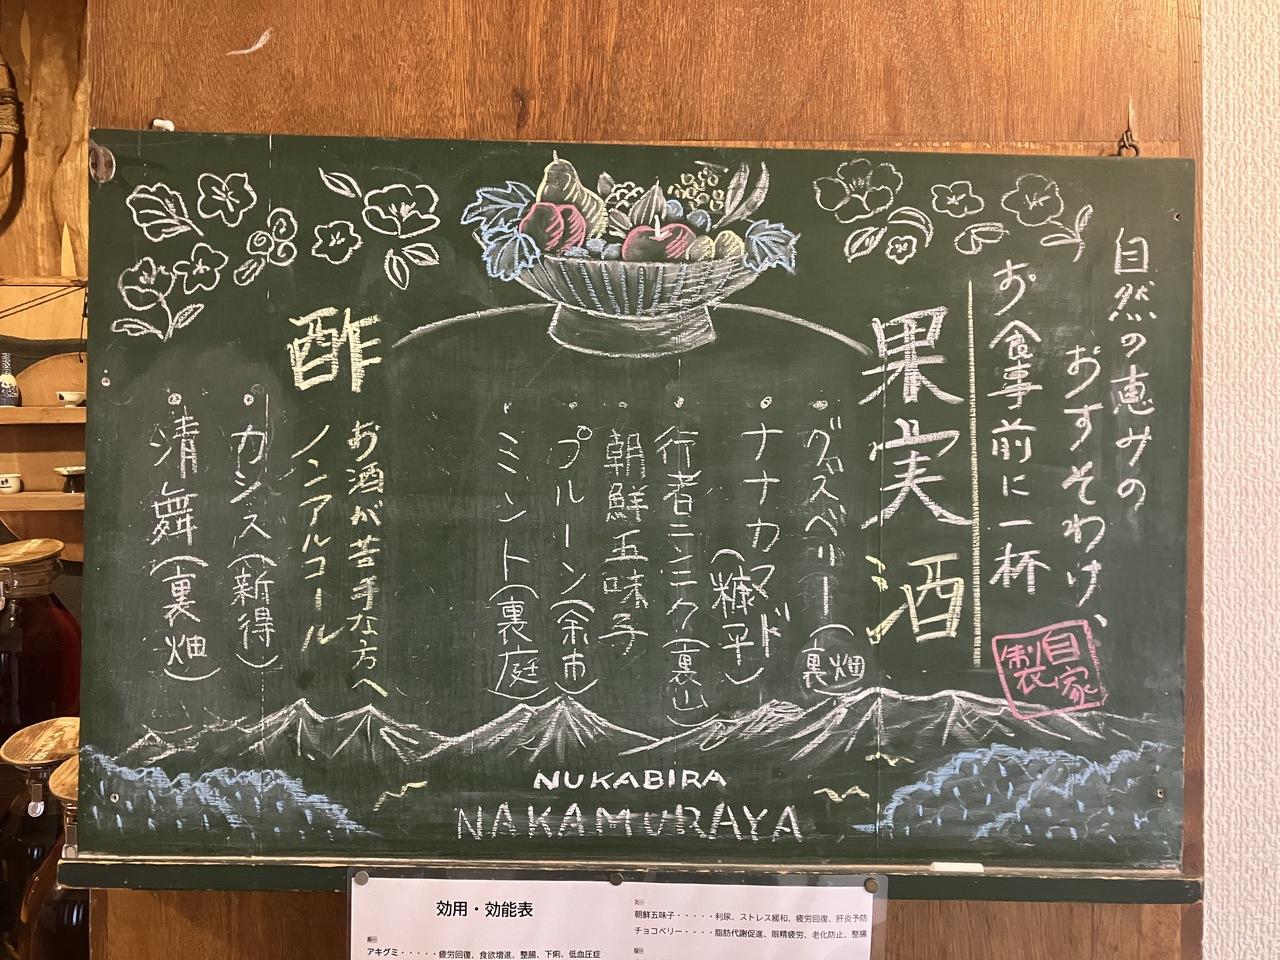 自然の恵みの
おすそわけ、
お食事前に一杯
自家製
果実酒
・グズベリー(裏畑)
・ナナカマド(糠平)
・行者ニンニク(裏山)
・朝鮮五味子
・プルーン(余市)
・ミント(裏庭)
酢
お酒が苦手な方へ
ノンアルコール
・カシス(新得)
・清舞(裏畑)
NUKABIRA
NAKAMURAYA
効用・効能表
アキグミ・・・・・疲労回復、食欲増進、整腸、下痢、低血圧症
朝鮮五味子・・・・・利尿、ストレス緩和、疲労回復、肝炎予防
チョコベリー・・・・脂肪代謝促進、眼精疲労、老化防止、整腸